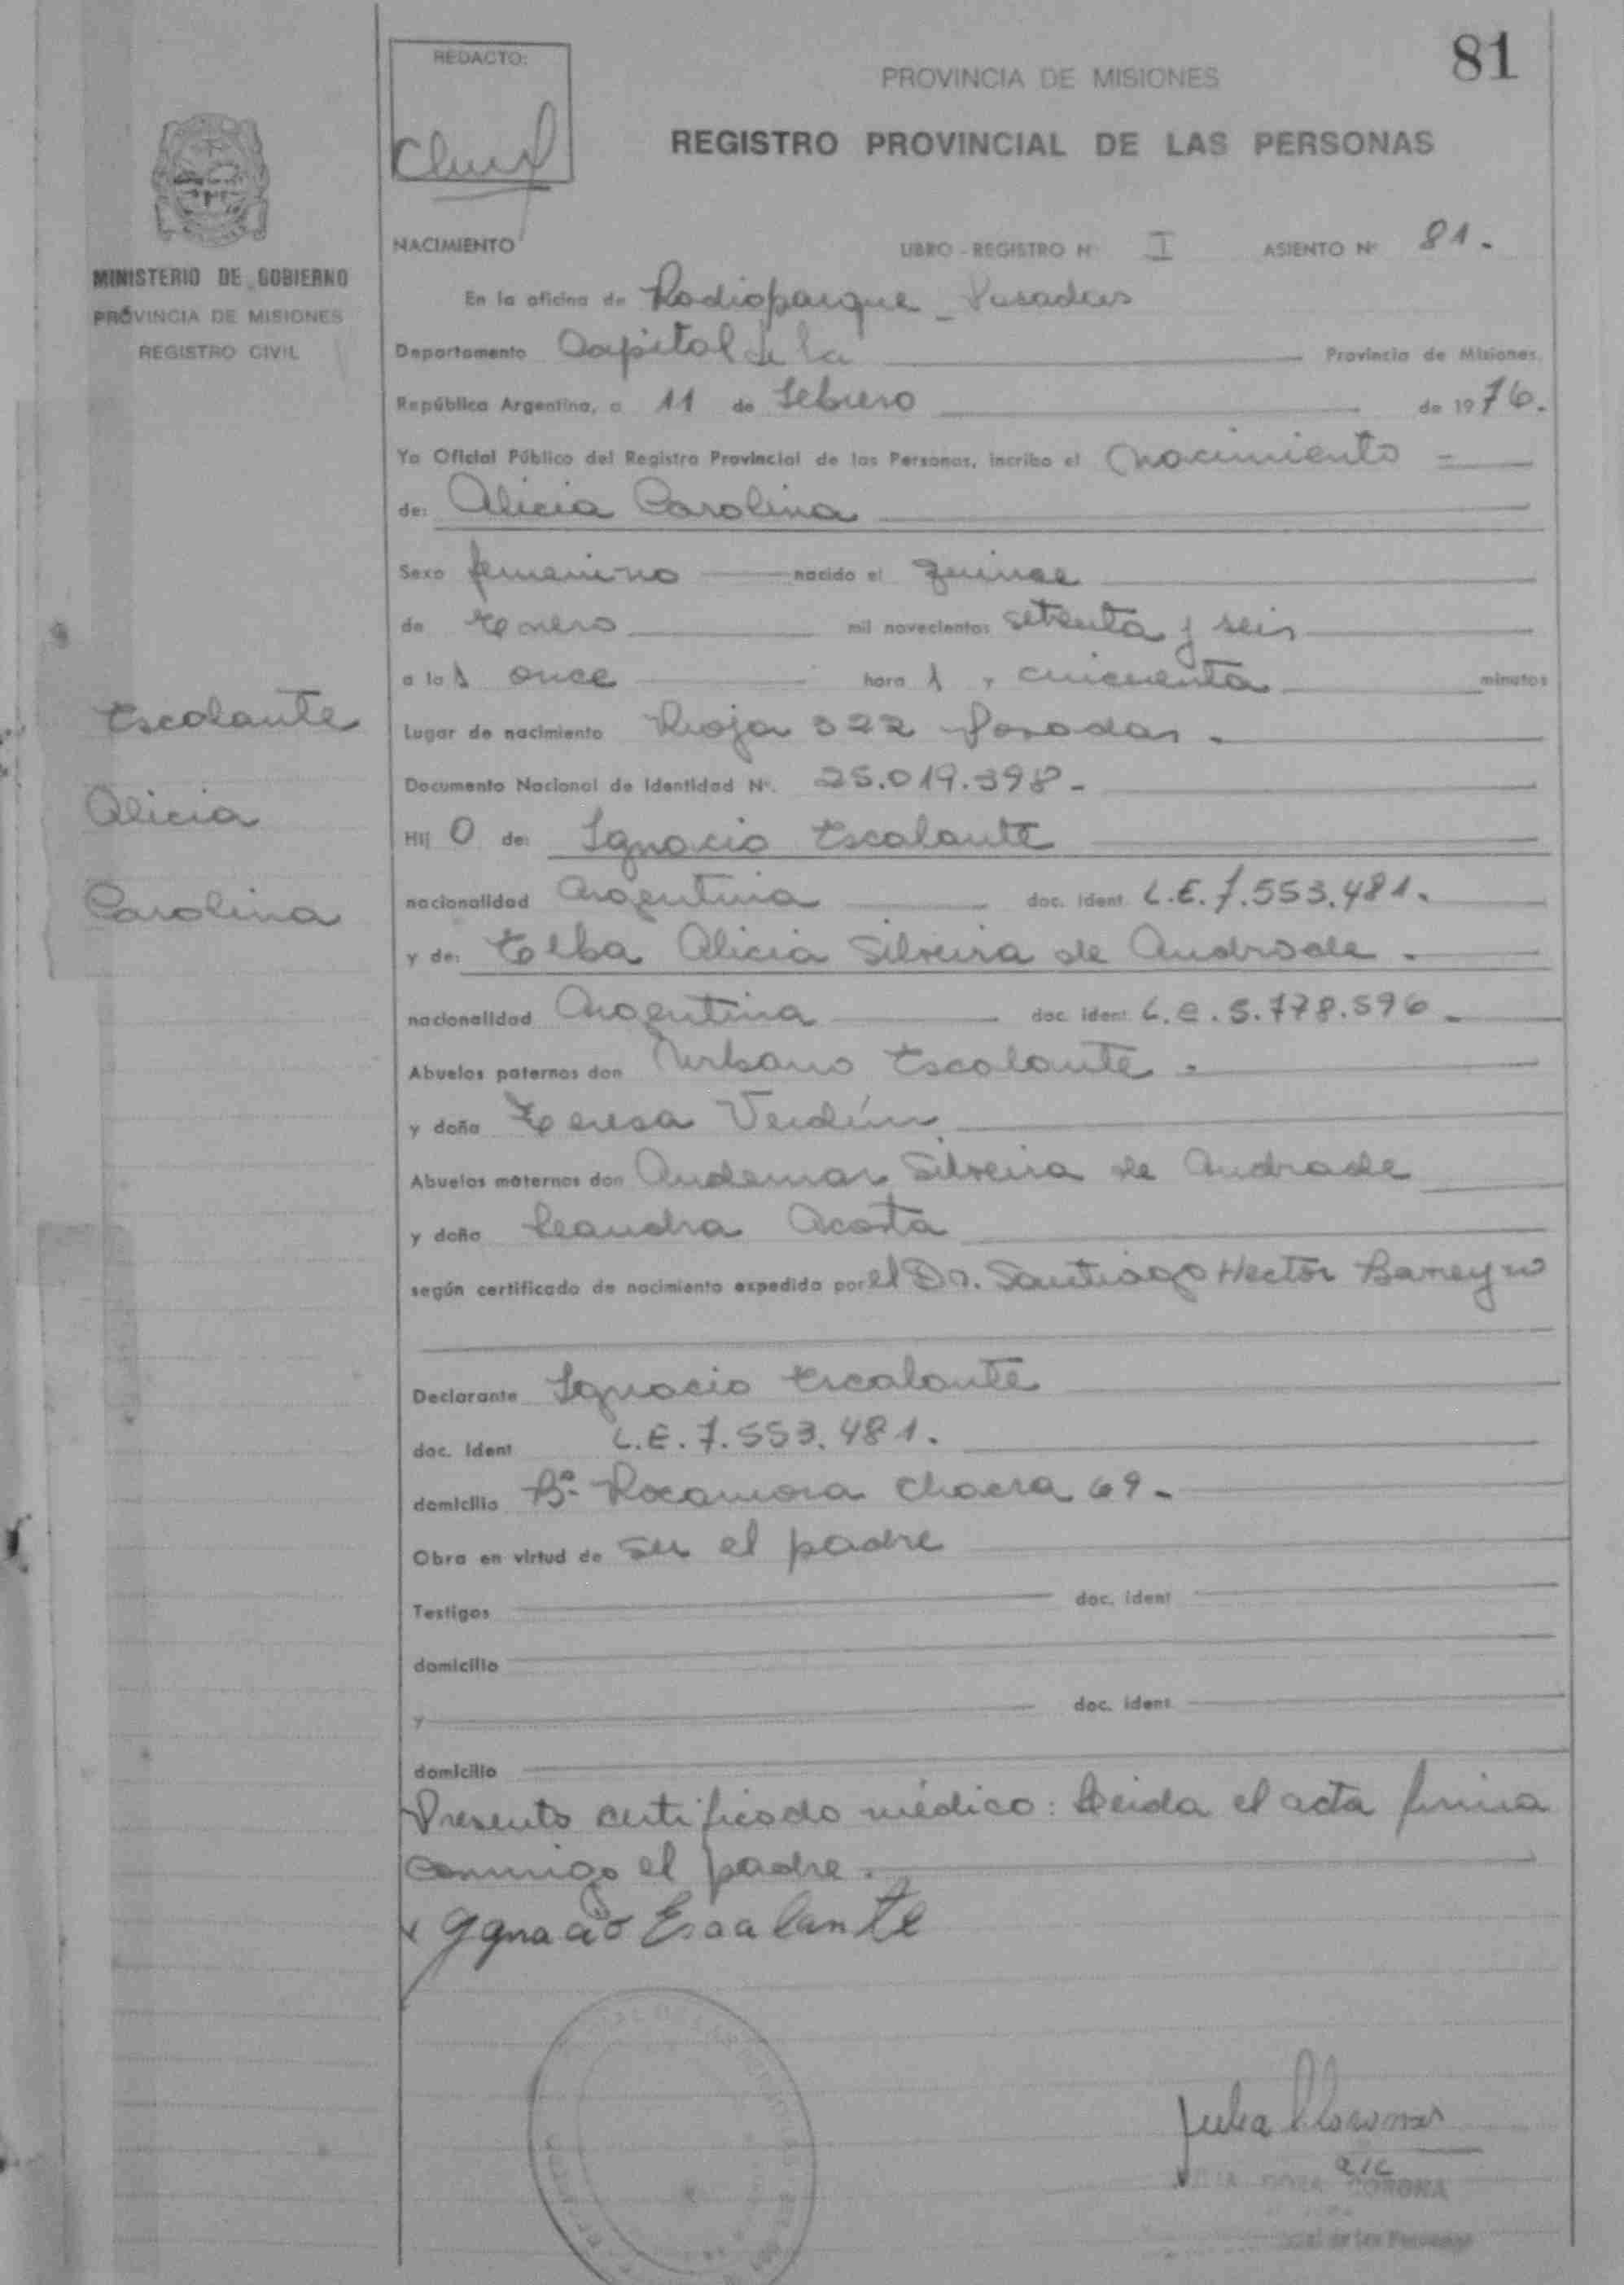 81
REDACTO:
PROVINCIA DE MISIONES
REGISTRO PROVINCIAL DE LAS PERSONAS
MINISTERIO DE GOBIERNO
PROVINCIA DE MISIONES
REGISTRO CIVIL
NACIMIENTO LIBRO - REGISTRO Nº I ASIENTO Nº 81.
En la oficina de Radioparque - Posadas
Departamento Capital de la Provincia de Misiones,
República Argentina, a 11 de Febrero de 1976.
Yo Oficial Público del Registro Provincial de las Personas, incribo el Nacimiento =
de: Alicia Carolina
Sexo femenino nacido el quince
de Enero mil novecientos setenta y seis
a las once horas, cincuenta minutos
Lugar de nacimiento Rioja 322 Posadas.
Documento Nacional de Identidad Nº. 25.019.398-
Hij O de: Ignacio Escalante
nacionalidad Argentina doc. ident. L.E. 7.553.481.
y de: Elba Alicia Silveira de Andrade.
nacionalidad Argentina doc. ident. L.C. 5.778.596.
Abuelos paternos don Urbano Escalante.
y doña Teresa Verdún
Abuelos maternos don Audemar Silveira de Andrade
y doña Leandra Acosta
según certificado de nacimiento expedido por el Dr. Santiago Hector Barreyro
Declarante Ignacio Escalante
doc. ident L.E. 7.553.481.
domicilio Bº Rocamora Chacra 69-
Obra en virtud de ser el padre
Testigos doc. ident
domicilio
y doc. ident
domicilio
Presento certificado médico: Leida el acta firma
conmigo el padre.
Ignacio Escalante
Escalante
Alicia
Carolina
Julia
CORONA
de las Personas